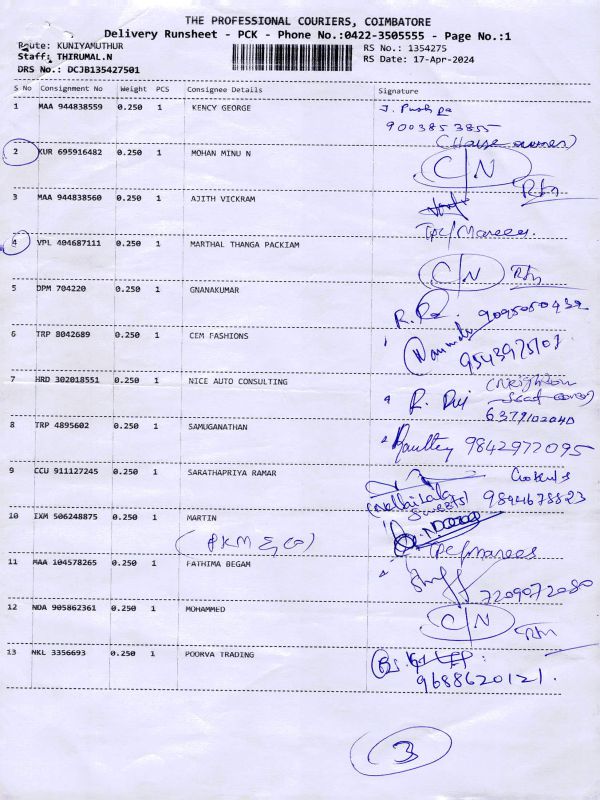 THE PROFESSIONAL COURIERS, COIMBATORE
Delivery Runsheet - PCK - Phone No.:0422-3505555 - Page No.:1
Route: KUNIYAMUTHUR
RS No.: 1354275
Staff: THIRUMAL.N
RS Date: 17-Apr-2024
DRS No.: DCJB135427501
S No Consignment No Weight PCS Consignee Details Signature
1 MAA 944838559 0.250 1 KENCY GEORGE J. Pushpa
9003853855
(House owner)
2 KUR 695916482 0.250 1 MOHAN MINU N C/N
Rtn
3 MAA 944838560 0.250 1 AJITH VICKRAM
TPC/Marees.
4 VPL 404687111 0.250 1 MARTHAL THANGA PACKIAM C/N Rtn
5 DPM 704220 0.250 1 GNANAKUMAR R. 9095050432
6 TRP 8042689 0.250 1 CEM FASHIONS
9543975103
7 HRD 302018551 0.250 1 NICE AUTO CONSULTING R.
6379102040
8 TRP 4895602 0.250 1 SAMUGANATHAN 9842977095
9 CCU 911127245 0.250 1 SARATHAPRIYA RAMAR
Sweets) 9894673823
10 IXM 506248875 0.250 1 MARTIN
(PKM & Co)
TPC/Marees
11 MAA 104578265 0.250 1 FATHIMA BEGAM
7209072080
12 NDA 905862361 0.250 1 MOHAMMED C/N
Rtn
13 NKL 3356693 0.250 1 POORVA TRADING
9688620121.
3